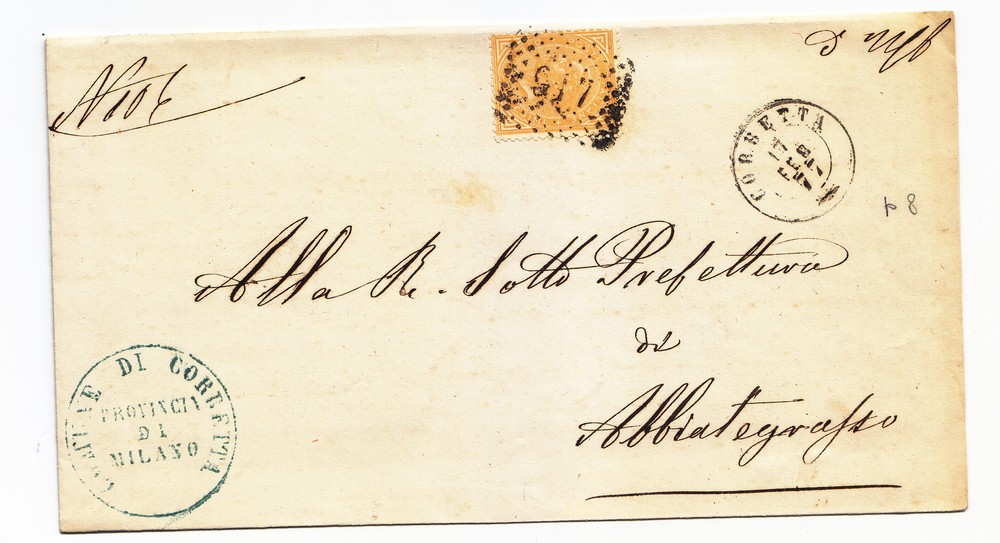 N 106
d' Uff
CORBETTA
17
FEB
Alla R. Sotto Prefettura
di
Abbiategrasso
COMUNE DI CORBETTA
PROVINCIA
DI
MILANO
p 8